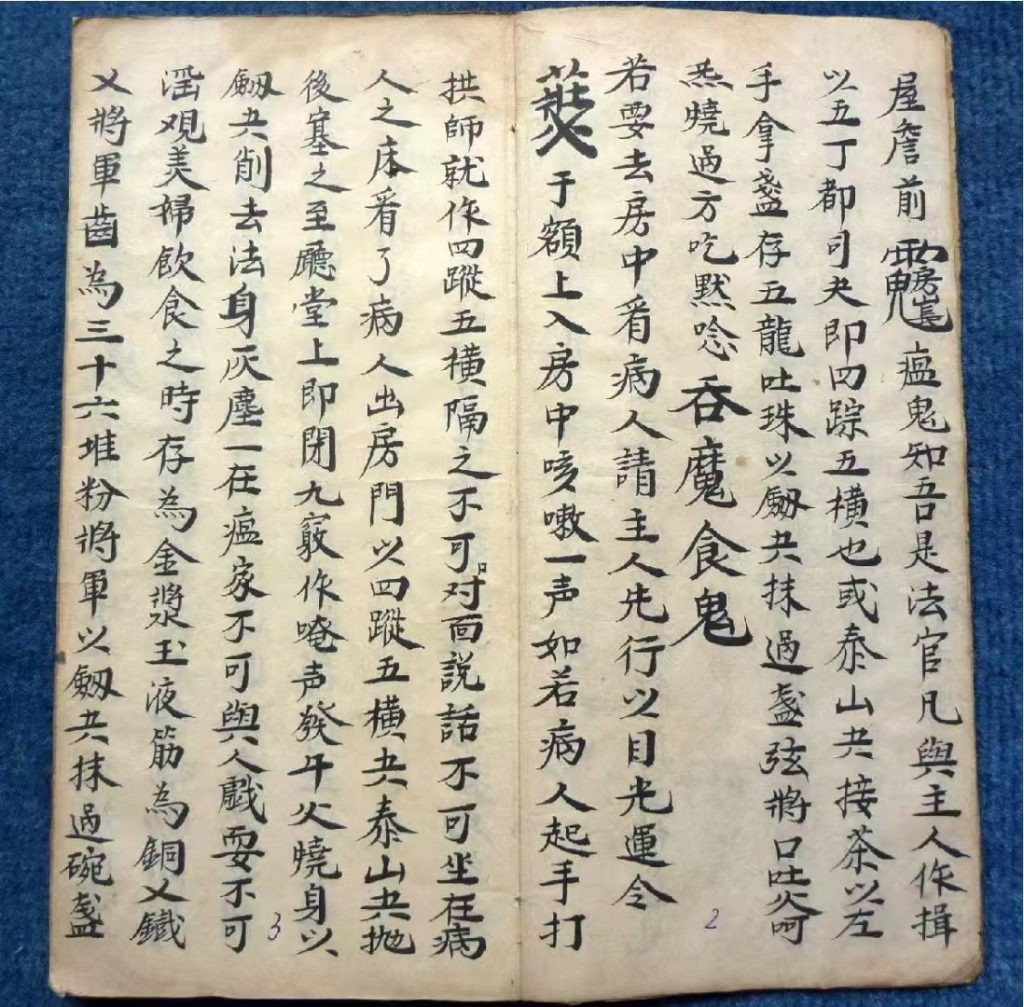 屋詹前瘟鬼知吾是法官凡與主人作揖
以五丁都司夬即四踪五橫也或泰山共接茶以左
手拿盞存五龍吐珠以劔共抹過盞弦將口吐火呵
炁燒過方吃黙唸吞魔食鬼
若要去房中看病人請主人先行以目光運令
于額上入房中咳嗽一声如若病人起手打
2
拱師就作四蹤五橫隔之不可对面説話不可坐在病
人之床看了病人出房門以四蹤五橫共泰山共抛
後塞之至廳堂上即閉九竅作唵声發午火燒身以
劔共削去法身灰塵一在瘟家不可與人戲耍不可
淫观美婦飲食之時存為金漿玉液筯為銅乂鐵
乂將軍齒為三十六堆粉將軍以劔共抹過碗盞
3